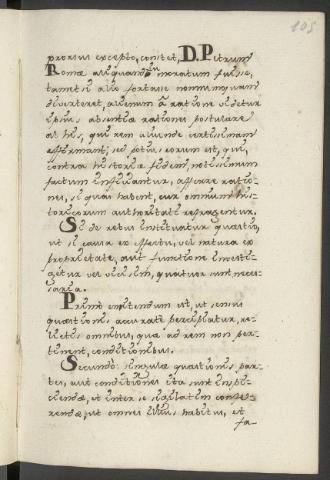 105
prorsus excepto, constet, D. Petrum
Romæ aliquando in moratum fuisse,
tametsi alio fortasse nonnunquam
diverteret, alienum à ratione videtur
ipsius absentiæ rationes postulare
ab his, qui rem aliunde certissimam
affirmant; sed potius eorum est, qui
contra historiæ fidem, notissimum
factum inficiantur, afferre ratio-
nes, si quas habent, cur omnium his-
toricorum authoritati refragentur.
Si de rebus instituatur quæstio,
ut si causa ex effectu, vel natura ex
proprietate, aut functione investi-
getur vel vicissim, quatuor sunt neces-
saria.
Primò enitendum est, ut sensus
quæstionis accuratè percipiatur, re-
iectis omnibus, quæ ad rem non per-
tinent, conditionibus.
Secundò: singulæ quæstionis par-
tes, aut conditiones ita sunt inspi-
ciendæ, et inter se sigillatim confe-
rendæ, ut omnes illius habitus, et
fa-